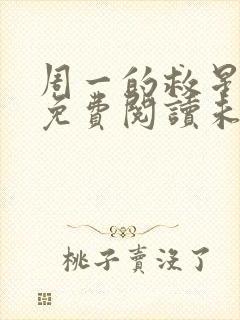 周一的救星
免费閱讀未
桃子賣没了